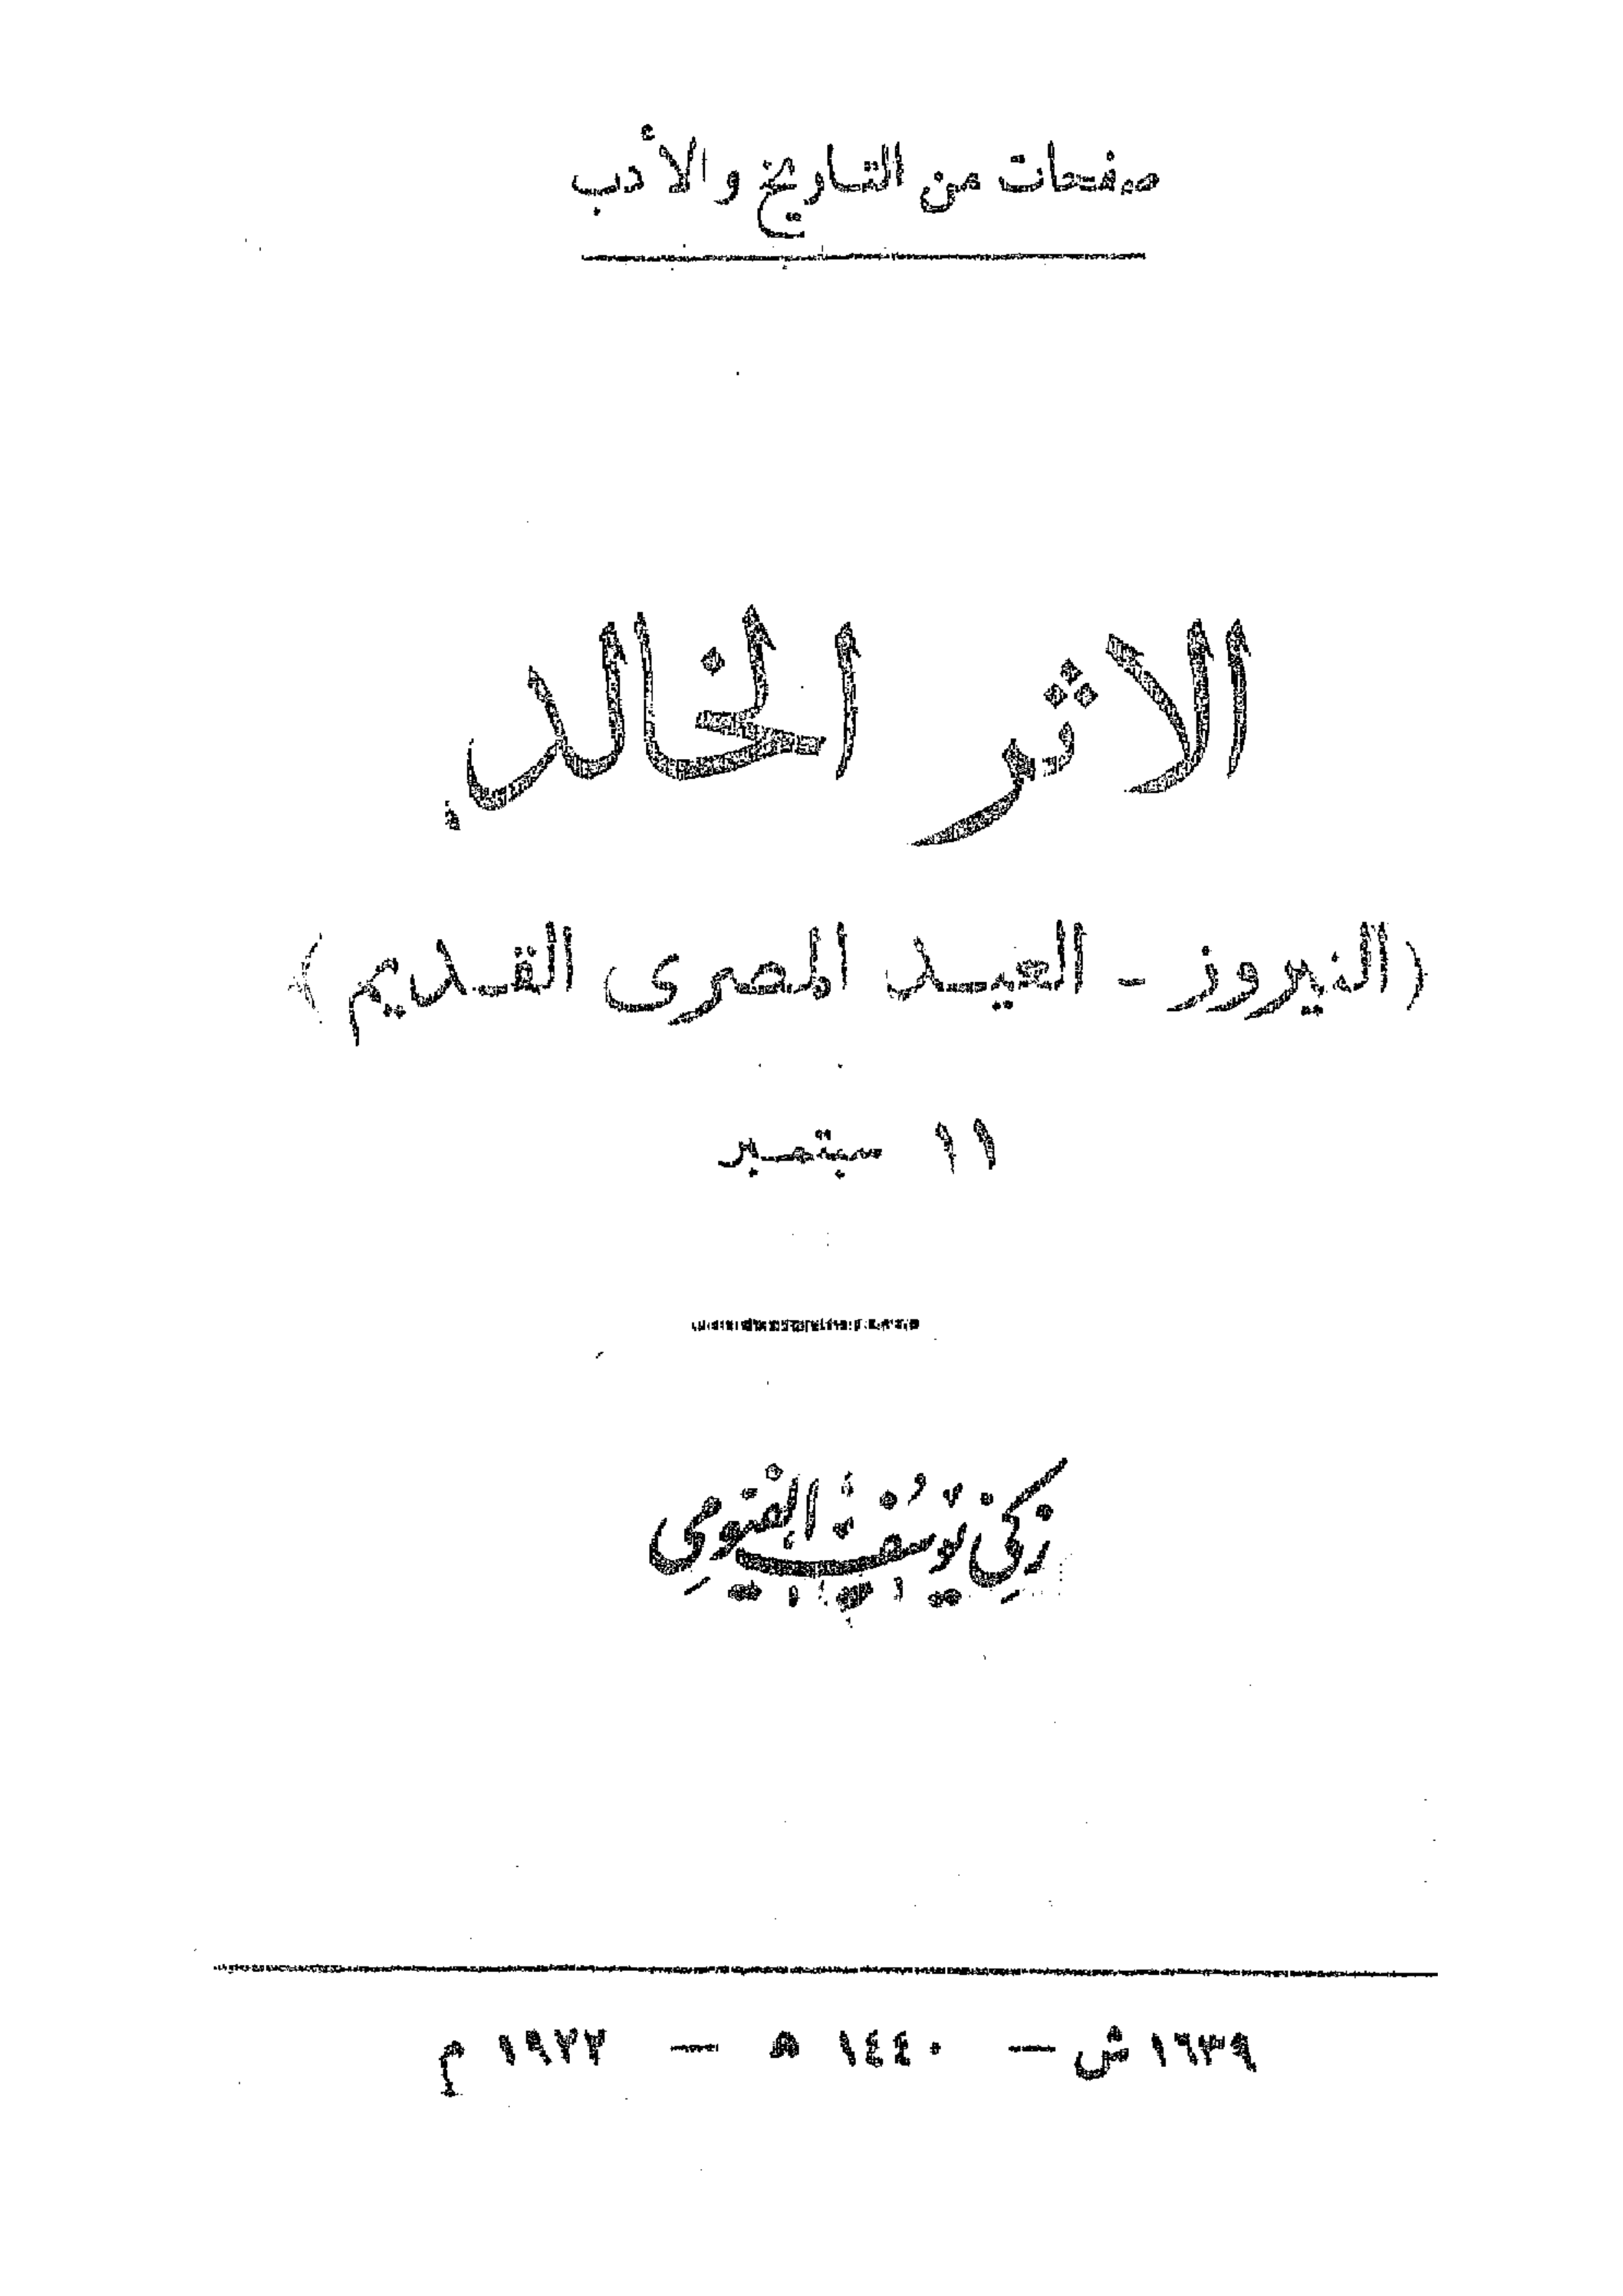 صفحات من التاريخ والأدب
الاثر الخالد
(النيروز - العيد المصرى القديم)
١١ سبتمبر
زكي يوسف الفيومي
١٦٣٩ ش — ١٤٤٠ ه — ١٩٢٢ م